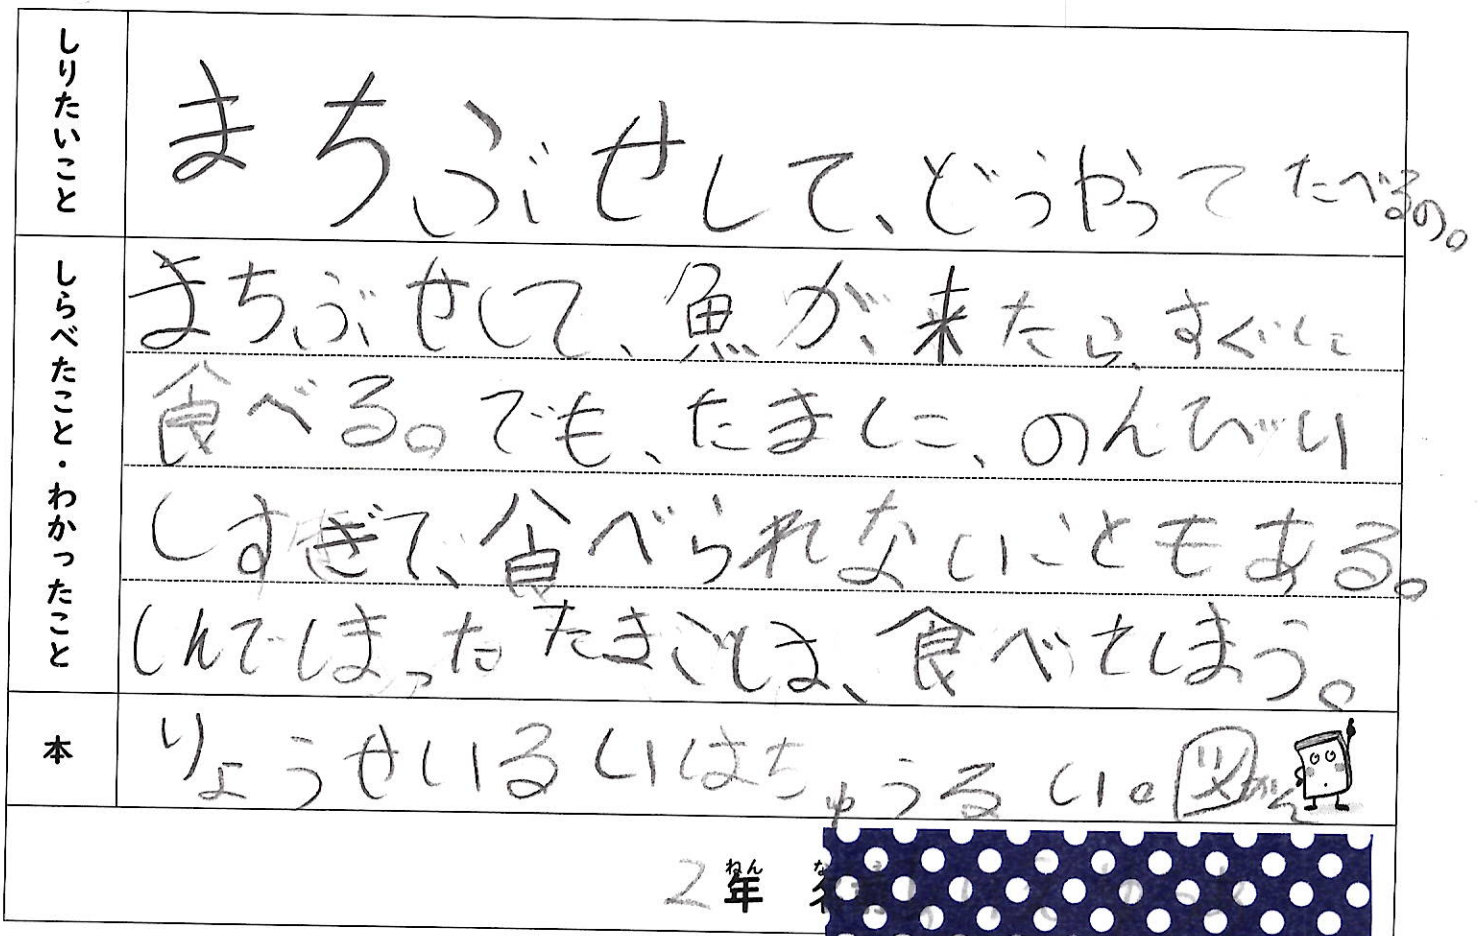 しりたいこと
まちぶせして、どうやってたべるの。
しらべたこと・わかったこと
まちぶせして、魚が、来たら、すぐに
食べる。でも、たまに、のんびり
しすぎて、食べられないこともある。
しんでしまったたまごは、食べてしまう。
本
りょうせいるいはちゅうるい。図かん
2年
ねん
な